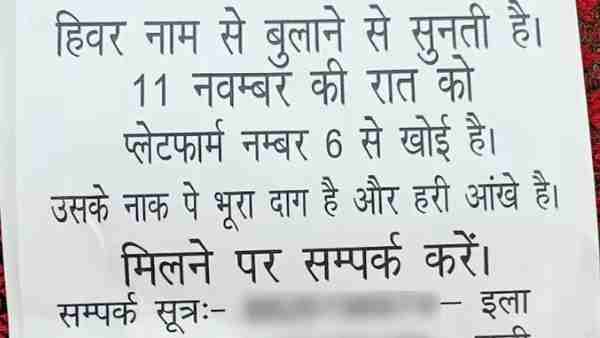 हिवर नाम से बुलाने से सुनती है।
11 नवम्बर की रात को
प्लेटफार्म नम्बर 6 से खोई है।
उसके नाक पे भूरा दाग है और हरी आंखे है।
मिलने पर सम्पर्क करें।
सम्पर्क सूत्रः- – इला